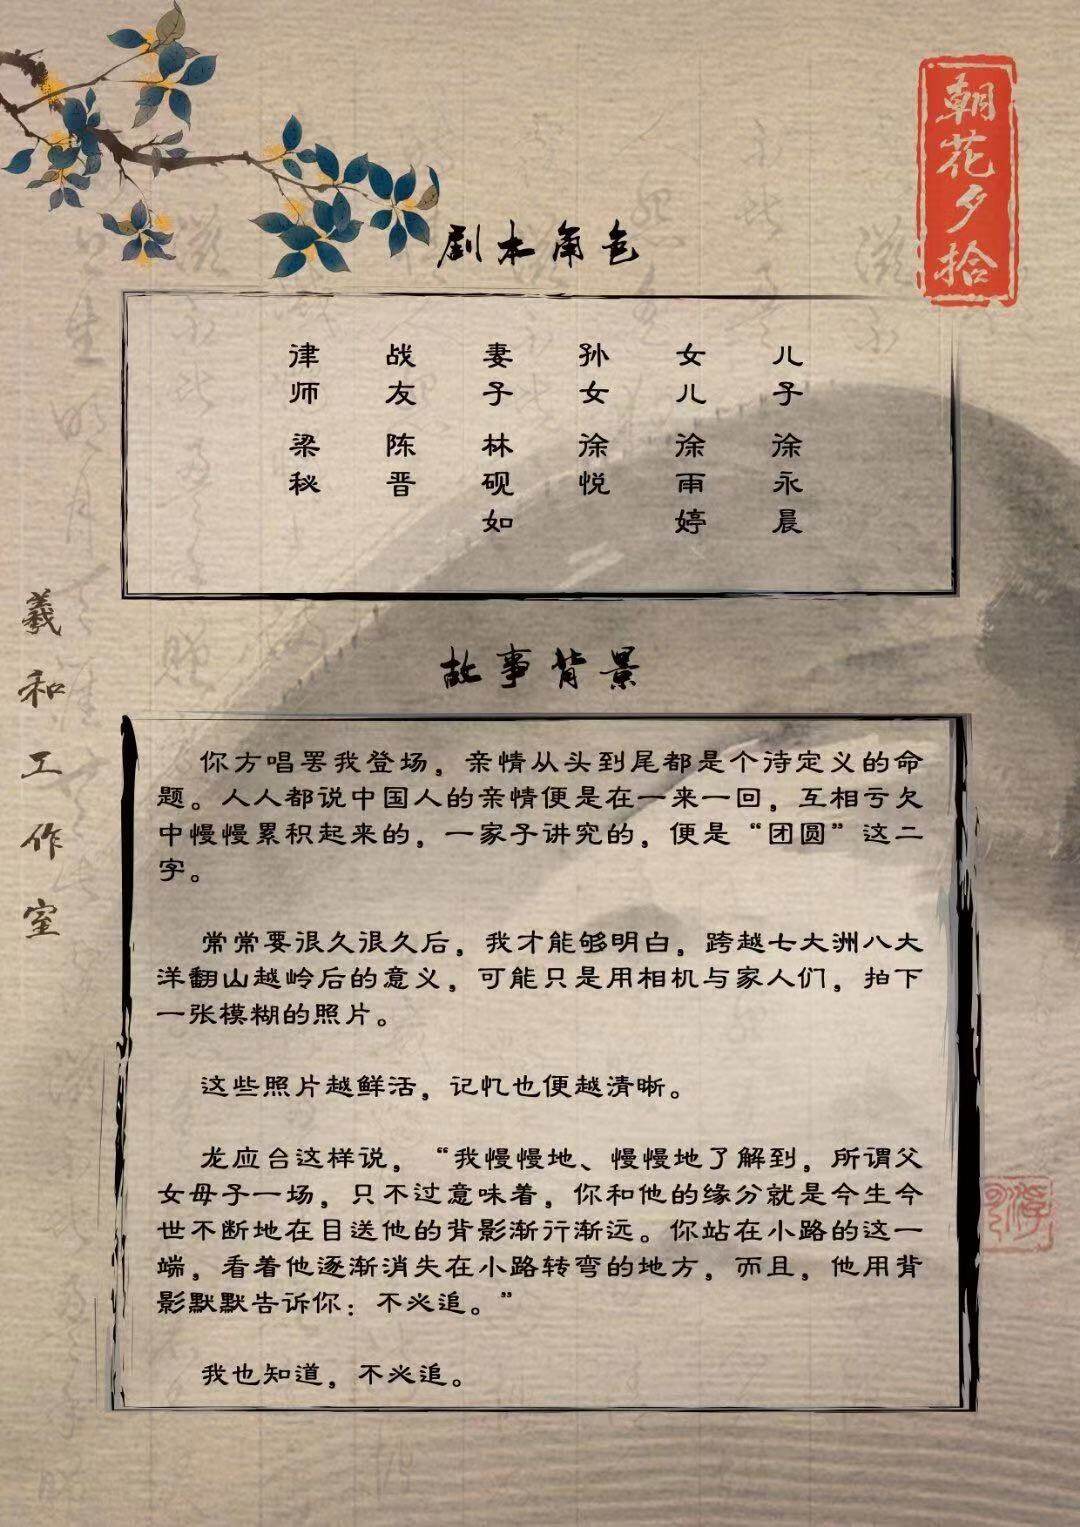 朝花夕拾
剧本角色
律师 梁秘
战友 陈晋
妻子 林砚如
孙女 徐悦
女儿 徐雨婷
儿子 徐永晨
羲和工作室
故事背景
你方唱罢我登场，亲情从头到尾都是个待定义的命
题。人人都说中国人的亲情便是在一来一回，互相亏欠
中慢慢累积起来的，一家子讲究的，便是“团圆”这二
字。
常常要很久很久后，我才能够明白，跨越七大洲八大
洋翻山越岭后的意义，可能只是用相机与家人们，拍下
一张模糊的照片。
这些照片越鲜活，记忆也便越清晰。
龙应台这样说，“我慢慢地、慢慢地了解到，所谓父
女母子一场，只不过意味着，你和他的缘分就是今生今
世不断地在目送他的背影渐行渐远。你站在小路的这一
端，看着他逐渐消失在小路转弯的地方，而且，他用背
影默默告诉你：不必追。”
我也知道，不必追。